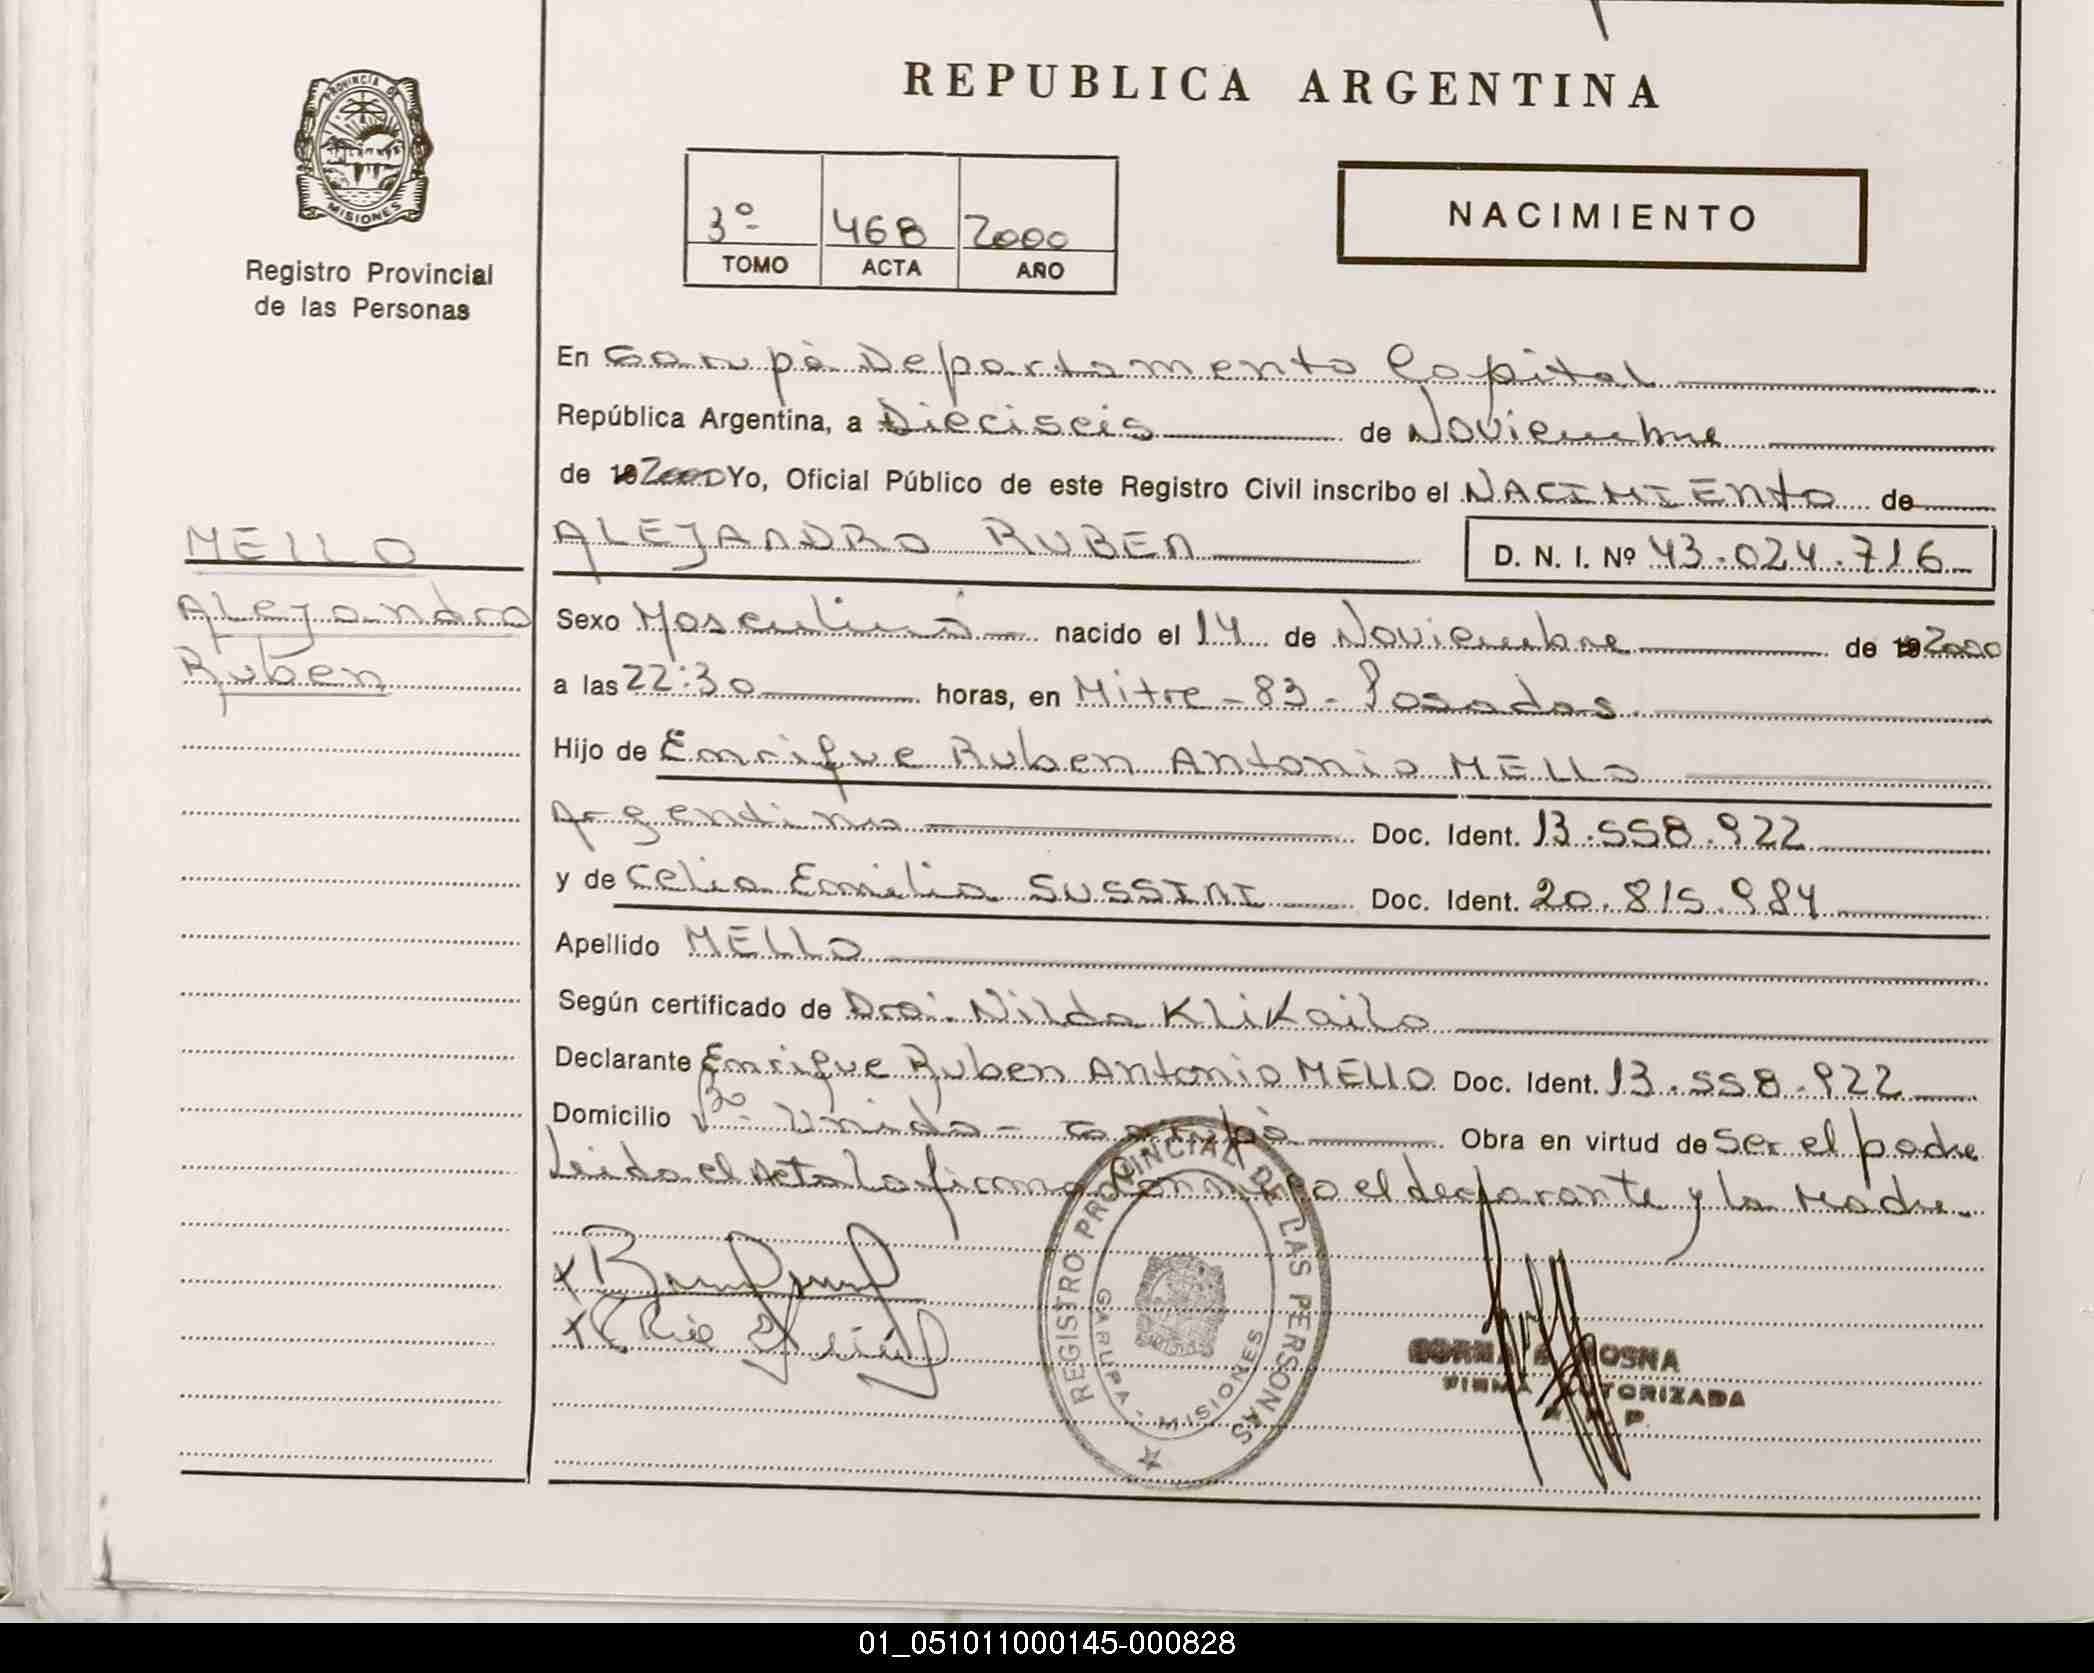 REPUBLICA ARGENTINA
PROVINCIA DE
MISIONES
Registro Provincial
de las Personas
3º 468 2000
TOMO ACTA AÑO
NACIMIENTO
En Garupá Departamento Capital
República Argentina, a Dieciseis de Noviembre
de 2000 Yo, Oficial Público de este Registro Civil inscribo el NACIMIENTO de
ALEJANDRO RUBEN D. N. I. Nº 43.024.716
MELLO
Alejandro
Ruben
Sexo Masculino nacido el 14 de Noviembre de 2000
a las 22:30 horas, en Mitre - 83 - Posadas
Hijo de Enrique Ruben Antonio MELLO
Argentino Doc. Ident. 13.558.922
y de Celia Emilia SUSSINI Doc. Ident. 20.815.984
Apellido MELLO
Según certificado de Dra. Nilda Klikailo
Declarante Enrique Ruben Antonio MELLO Doc. Ident. 13.558.922
Domicilio Bº Unida - Garupá Obra en virtud de Ser el padre
Leida el Acta La firma Conmigo el declarante y la Madre.
REGISTRO PROVINCIAL DE LAS PERSONAS
GARUPA - MISIONES
FIRMA AUTORIZADA
01_051011000145-000828